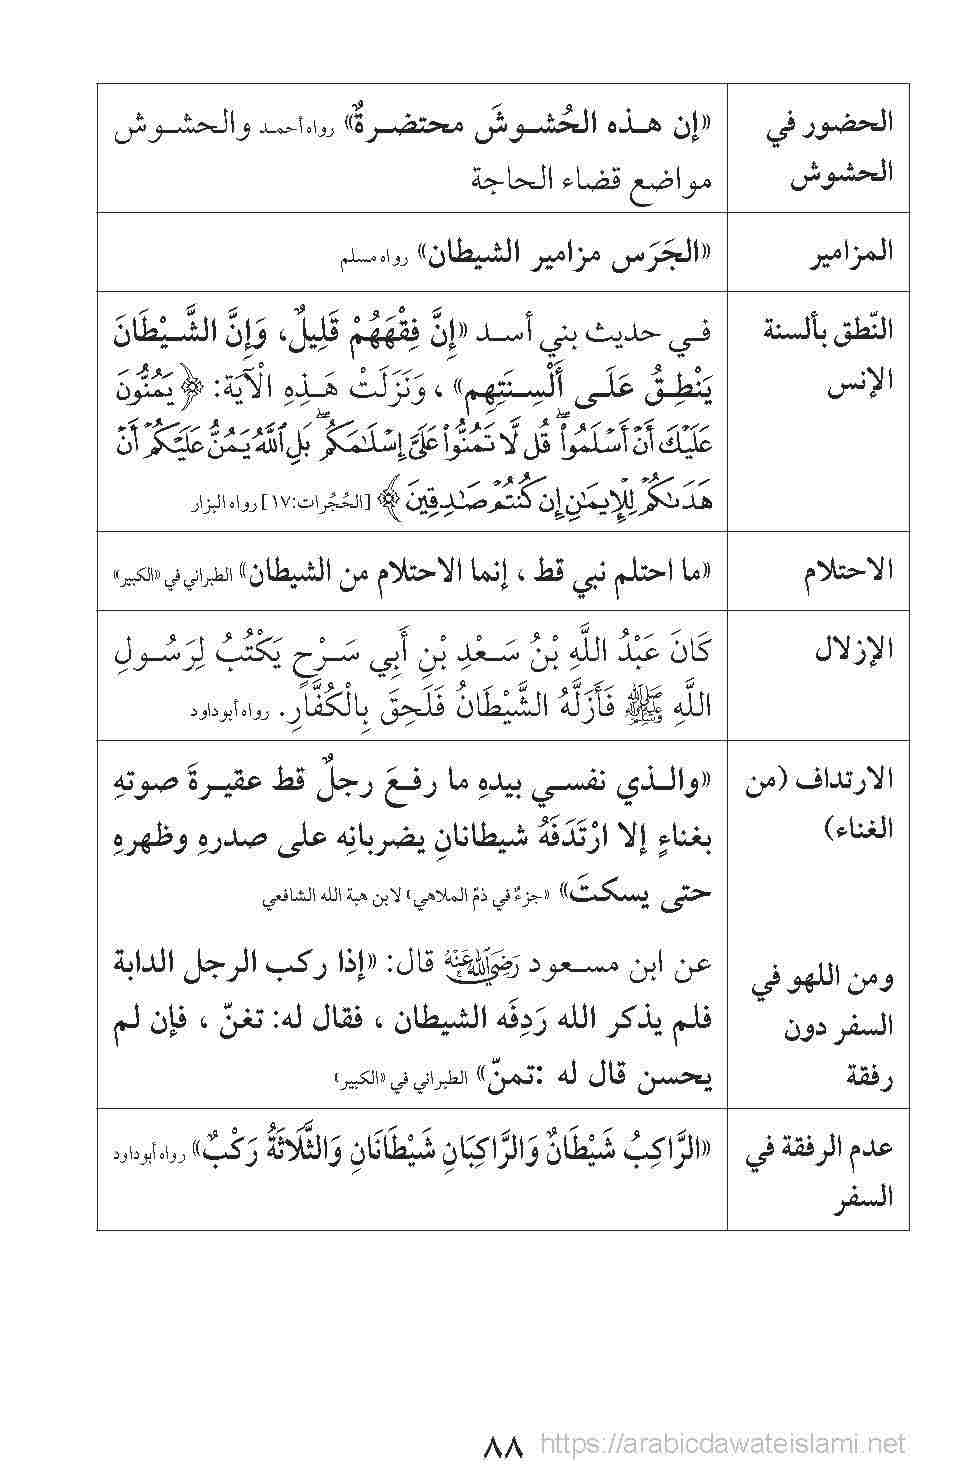 الحضور في
الحشوش
«إن هذه الحُشوشَ محتضرةٌ» رواه أحمد والحشوش
مواضع قضاء الحاجة
المزامير
«الجَرَس مزامير الشيطان» رواه مسلم
النّطق بألسنة
الإنس
في حديث بني أسد «إِنَّ فِقْهَهُمْ قَلِيلٌ، وَإِنَّ الشَّيْطَانَ
يَنْطِقُ عَلَى أَلْسِنَتِهِم» ، وَنَزَلَتْ هَذِهِ الْآيَة: ﴿يَمُنُّونَ
عَلَيْكَ أَنْ أَسْلَمُوا۟ ۖ قُل لَّا تَمُنُّوا۟ عَلَىَّ إِسْلَـٰمَكُم ۖ بَلِ ٱللَّهُ يَمُنُّ عَلَيْكُمْ أَنْ
هَدَىٰكُمْ لِلْإِيمَـٰنِ إِن كُنتُمْ صَـٰدِقِينَ﴾ [الحُجُرات:١٧] رواه البزار
الاحتلام
«ما احتلم نبي قط ، إنما الاحتلام من الشيطان» الطبراني في «الكبير»
الإزلال
كَانَ عَبْدُ اللَّهِ بْنُ سَعْدِ بْنِ أَبِي سَرْحٍ يَكْتُبُ لِرَسُولِ
اللَّهِ ﷺ فَأَزَلَّهُ الشَّيْطَانُ فَلَحِقَ بِالْكُفَّارِ. رواه أبوداود
الارتداف (من
الغناء)
«والذي نفسي بيدهِ ما رفعَ رجلٌ قط عقيرةَ صوتهِ
بغناءٍ إلا ارْتَدَفَهُ شيطانانِ يضربانِه على صدرهِ وظهرهِ
حتى يسكتَ» «جزءٌ في ذمّ الملاهي» لابن هبة الله الشافعي
ومن اللهو في
السفر دون
رفقة
عن ابن مسعود رَضِيَ اللَّهُ عَنْهُ قال: «إذا ركب الرجل الدابة
فلم يذكر الله رَدِفَه الشيطان ، فقال له: تغنّ ، فإن لم
يحسن قال له :تمنّ» الطبراني في «الكبير»
عدم الرفقة في
السفر
«الرَّاكِبُ شَيْطَانٌ وَالرَّاكِبَانِ شَيْطَانَانِ وَالثَّلَاثَةُ رَكْبٌ» رواه أبوداود
٨٨
https://arabicdawateislami.net